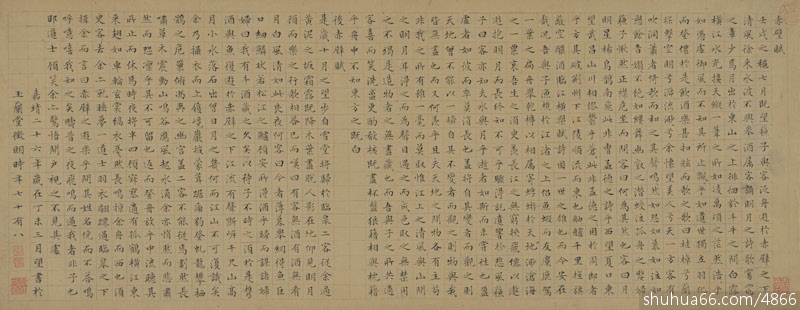 赤壁賦
壬戌之秋七月既望蘇子與客泛舟遊於赤壁之下
清風徐來水波不興舉酒屬客誦明月之詩歌窈窕
之章少焉月出於東山之上徘徊於斗牛之間白露
橫江水光接天縱一葦之所如凌萬頃之茫然浩浩乎
如馮虛御風而不知其所止飄飄乎如遺世獨立羽化
而登僊於是飲酒樂甚扣舷而歌之歌曰桂棹兮蘭
槳擊空明兮泝流光渺渺兮余懷望美人兮天一方客有
吹洞簫者倚歌而和之其聲嗚嗚然如怨如慕如泣如
訴餘音嫋嫋不絕如縷舞幽壑之潛蛟泣孤舟之嫠婦
蘇子愀然正襟危坐而問客曰何為其然也客曰月
明星稀烏鵲南飛此非曹孟德之詩乎西望夏口東
望武昌山川相繆鬱乎蒼蒼此非孟德之困於周郎者
乎方其破荊州下江陵順流而東也舳艫千里旌旗
蔽空釃酒臨江橫槊賦詩固一世之雄也而今安在
哉況吾與子漁樵於江渚之上侶魚蝦而友麋鹿駕
一葉之扁舟舉匏樽以相屬寄蜉蝣於天地渺滄海
之一粟哀吾生之須臾羨長江之無窮挾飛僊以遨
遊抱明月而長終知不可乎驟得託遺響於悲風蘇
子曰客亦知夫水與月乎逝者如斯而未嘗往也盈
虛者如彼而卒莫消長也蓋將自其變者而觀之則
天地曾不能以一瞬自其不變者而觀之則物與我
皆無盡也而又何羨乎且夫天地之間物各有主苟
非我之所有雖一毫而莫取惟江上之清風與山間
之明月耳得之而為聲目遇之而成色取之無禁用
之不竭是造物者之無盡藏也而吾與子之所共適
客喜而笑洗盞更酌殽核既盡杯盤狼籍相與枕藉
乎舟中不知東方之既白
後赤壁賦
是歲十月之望步自雪堂將歸於臨皋二客從余過
黃泥之坂霜露既降木葉盡脫人影在地仰見明月
顧而樂之行歌相答已而歎曰有客無酒有酒無肴
月白風清如此良夜何客曰今者薄暮舉網得魚巨
口細鱗狀如松江之鱸顧安所得酒乎歸而謀諸婦
婦曰我有斗酒藏之久矣以待子不時之須於是攜
酒與魚復遊於赤壁之下江流有聲斷岸千尺山高
月小水落石出曾日月之幾何而江山不可復識矣
余乃攝衣而上履巉巖披蒙茸踞虎豹登虬龍攀栖
鶻之危巢俯馮夷之幽宮蓋二客不能從焉劃然長
嘯草木震動山鳴谷應風起水涌余亦悄然而悲肅
然而恐凜乎其不可留也反而登舟放乎中流聽其
所止而休焉時夜將半四顧寂寥適有孤鶴橫江東
來翅如車輪玄裳縞衣戛然長鳴掠余舟而西也須
臾客去余亦就睡夢一道士羽衣翩躚過臨皋之下
揖余而言曰赤壁之遊樂乎問其姓名俛而不答嗚
呼噫嘻我知之矣疇昔之夜飛鳴而過我者非子也
耶道士顧笑余亦驚悟開戶視之不見其處
嘉靖二十六年歲在丁未三月望書於
玉蘭堂徵明時年七十有八
shuhua66.com/4866